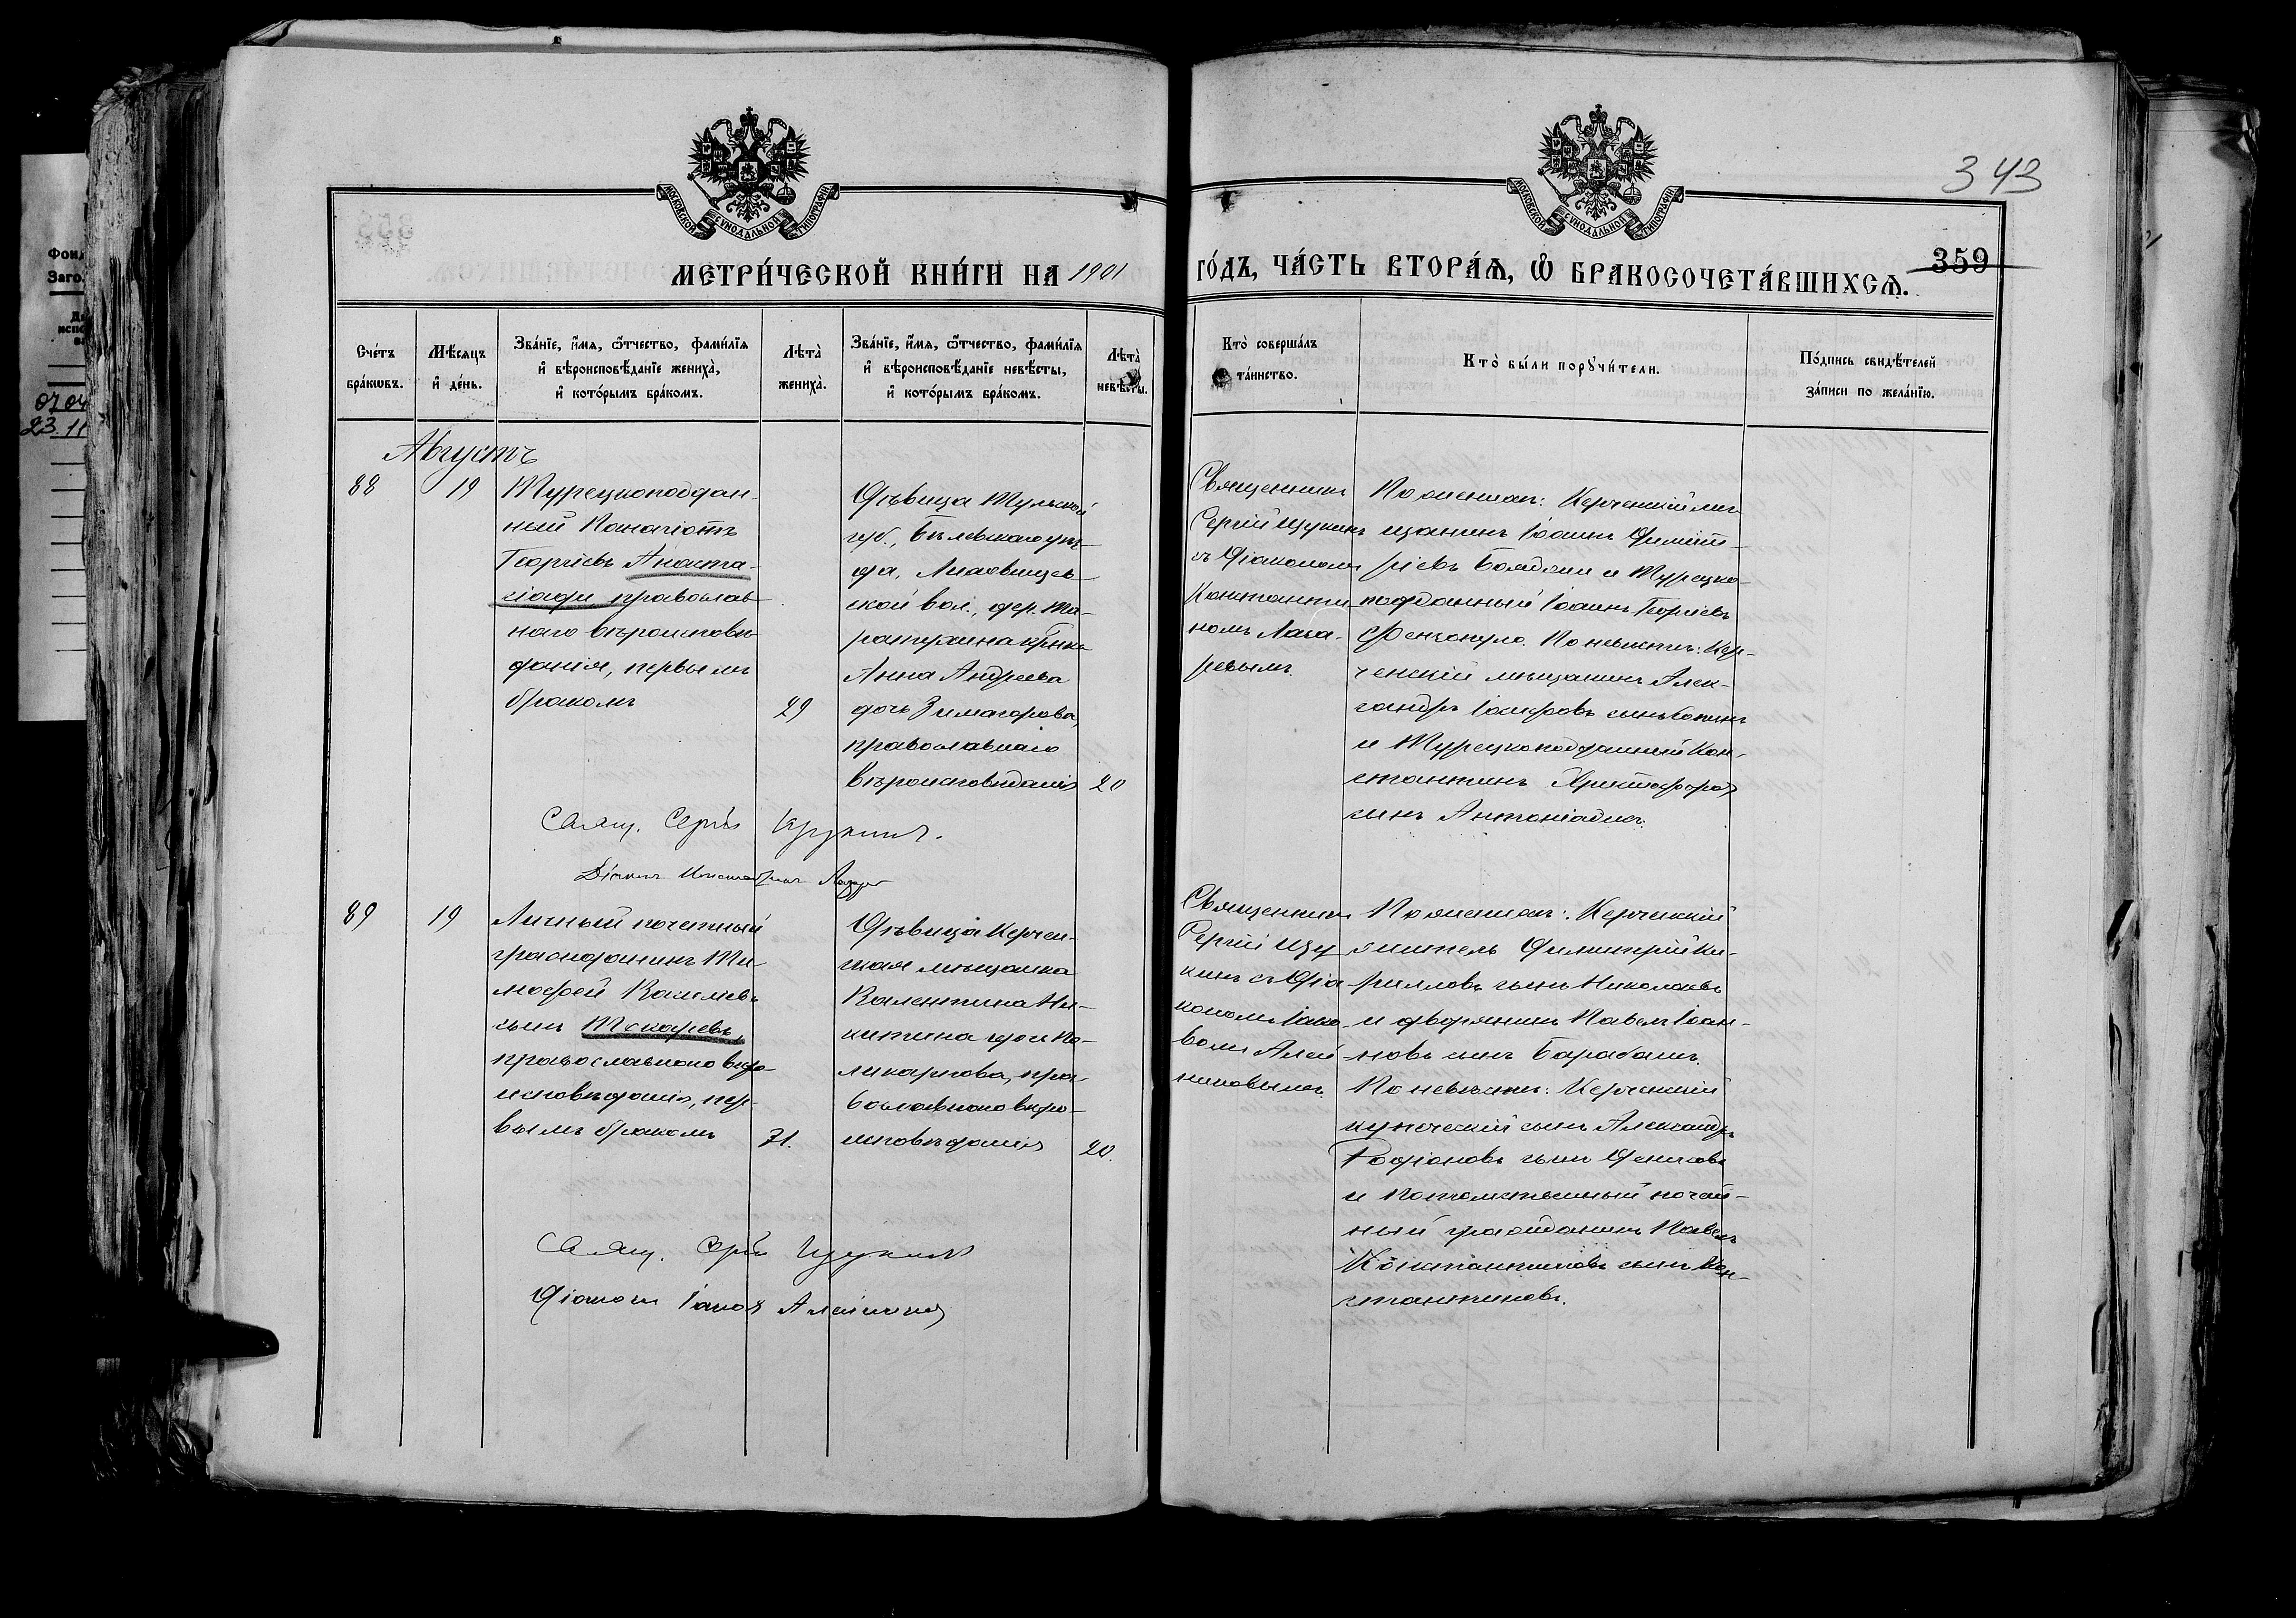 343
359
МЕТРИ́ЧЕСКОЙ КНИ́ГИ НА 1901 ГО́ДЪ, ЧА́СТЬ ВТОРА́Ѧ, Ѽ БРАКОСОЧЕТА́ВШИХСѦ.
МОСКОВСКОЙ СѴНОДАЛЬНОЙ ТИПОГРАФІИ
МОСКОВСКОЙ СѴНОДАЛЬНОЙ ТИПОГРАФІИ
Сче́тъ
бра́кѡвъ.
Мѣ́сѧцъ
и҆ де́нь.
Зва́нїе, и҆́мя, ѻ҆́тчество, фами́лїя
и҆ вѣроисповѣ́данїе жениха̀,
и҆ кото́рымъ бра́комъ.
Лѣта̀
жениха̀.
Зва́нїе, и҆́мя, ѻ҆́тчество, фами́лїя
и҆ вѣроисповѣ́данїе невѣ́сты,
и҆ кото́рымъ бра́комъ.
Лѣта̀
невѣ́сты.
Кто̀ соверша́лъ
та́инство.
Кто̀ бы́ли порꙋчи́тели.
По́дпись свидѣ́телей
за́писи по жела́нїю.
Августъ
88
19
Турецкоподдан-
ный Панагіотъ
Георгіевъ Анаста-
сіади православ-
наго вѣроисповѣ-
данія, первымъ
бракомъ
29
Дѣвица Тульской
губ., Бѣлевскаго уѣз-
да,
ской вол., дер.
Анна Андреева
дочь Зимагорова,
православнаго
вѣроисповѣданія
20
Священникъ
Сергій Щукинъ
съ Діакономъ
Константи-
номъ Лаза-
ревымъ.
По женихѣ: Керченскій мѣ-
щанинъ Іоаннъ Димитріевъ
и Турецко-
подданный Іоаннъ Георгіевъ
По невѣстѣ: Кер-
ченскій мѣщанинъ Алек-
сандръ Іосифовъ сынъ
и Турецкоподданный Кон-
стантинъ Христофоровъ
сынъ Антоніадисъ.
Свящ. Сергій Щукинъ.
Діаконъ Константинъ Лазаревъ
89
19
Личный почетный
гражданинъ Ти-
мофей Василіевъ
сынъ Токаревъ,
православнаго вѣро-
исповѣданія, пер-
вымъ бракомъ
31.
Дѣвица Керчен-
ская мѣщанка
Валентина Ни-
китина дочь По-
ликарпова, пра-
вославнаго вѣро-
исповѣданія
20.
Священникъ
Сергій Щу
кинъ съ Діа
кономъ Іако-
вомъ Алей-
никовымъ.
По женихѣ: Керченскій
житель Димитрій Ки-
рилловъ сынъ Николаевъ
и дворянинъ Павелъ Іоан-
новъ сынъ Барабашъ.
По невѣстѣ: Керченскій
купеческій сынъ Александръ
Родіоновъ сынъ Денисовъ
и Потомственный почет-
ный гражданинъ Павелъ
Константиновъ сынъ Кон-
стантиновъ.
Свящ. Сергій Щукинъ
Діаконъ Іаковъ Алейниковъ
Фонд
Заго